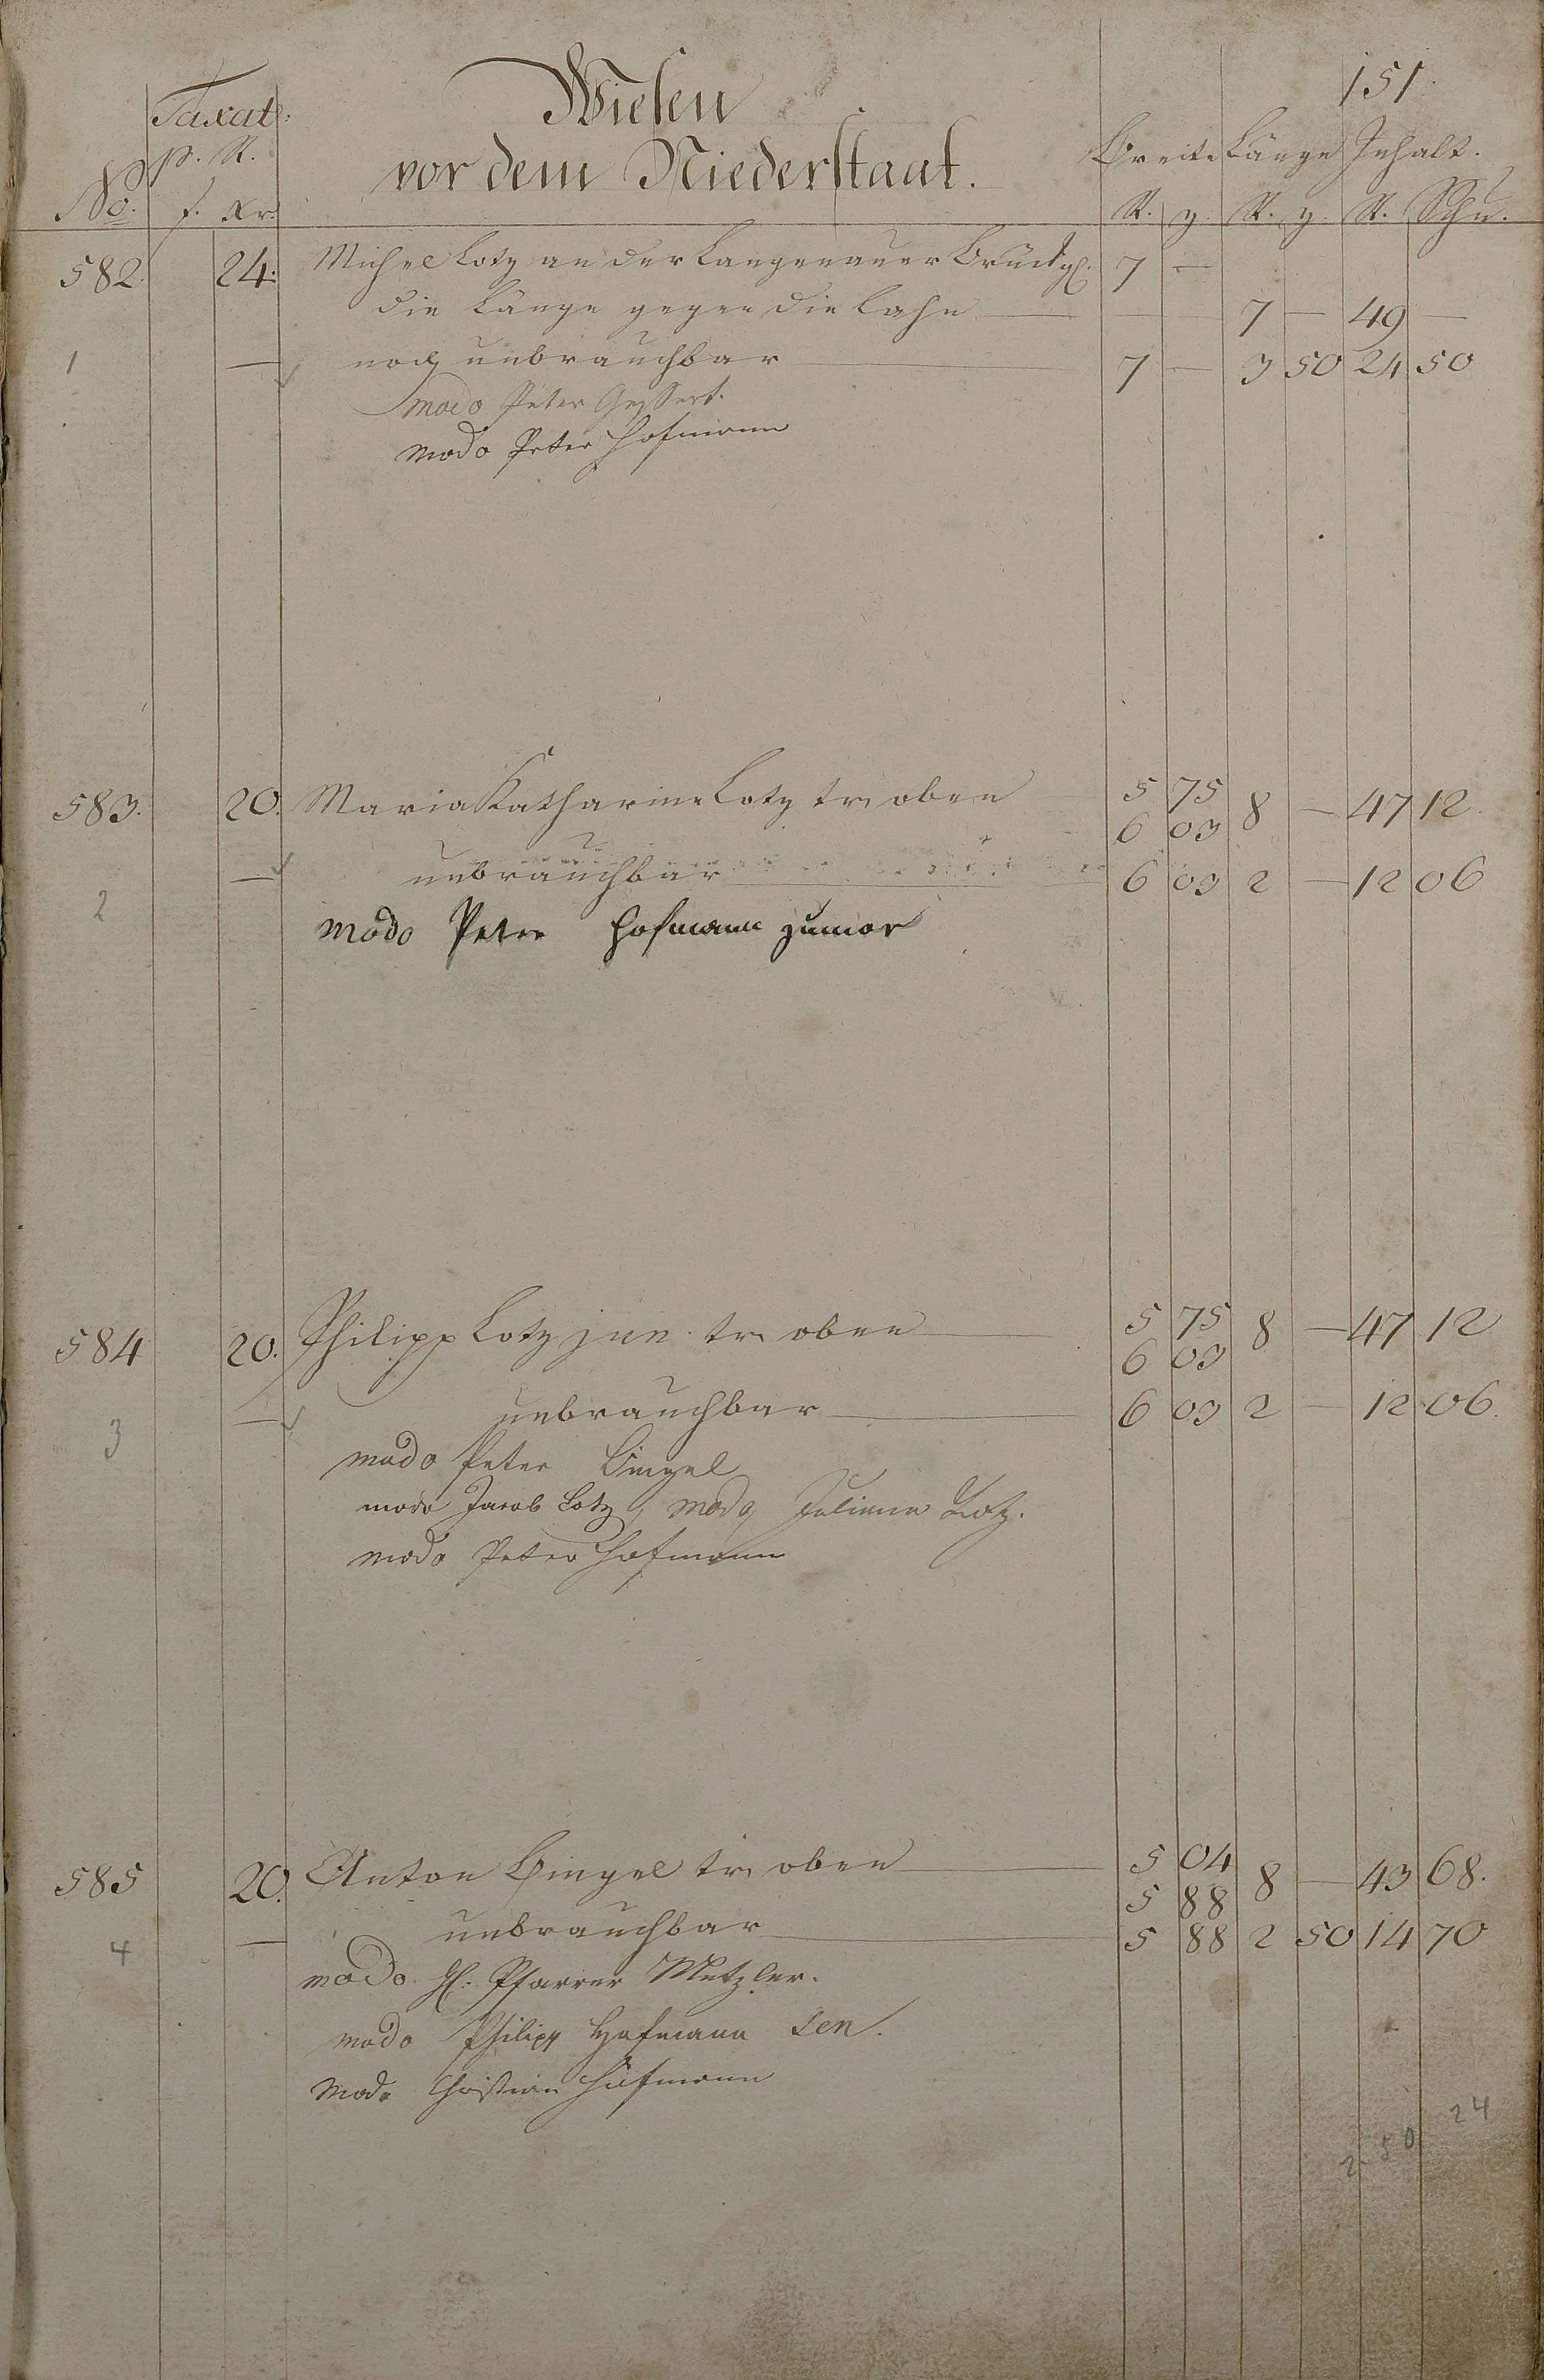 151.
Taxat:
Wiesen
p. R.
vor dem Niederstaat.
Breite Länge Inhalt.
No. f. Xr. R. R. R. Schu.
582. 24. Michel Lotz an der Langenauer Brück 7 —
die Länge gegen die Lahn — — — 7 — 49 —
1 — noch unbrauchbar 7 — 3 50 24 50
modo Peter Gessert.
modo Peter Hofmann
583. 20. Maria Katharine Lotz tr. oben 5 75 8 — 47 12
6 03
2 — unbrauchbar 6 03 2 — 12 06
modo Peter Hofmann junior
584 20. Philipp Lotz jun. tr. oben 5 75 8 — 47 12
6 03
3 — unbrauchbar 6 03 2 — 12 06.
modo Peter Bingel
modo Jacob Lotz, modo Juliana Lotz.
modo Peter Hofmann
585 20. Anton Bingel tr. oben 5 04 8 — 43 68.
5 88
4 — unbrauchbar 5 88 2 50 14 70
modo H. Pfarrer Metzler.
modo Philipp Hofmann sen.
modo Christian Hofmann
24
2 50